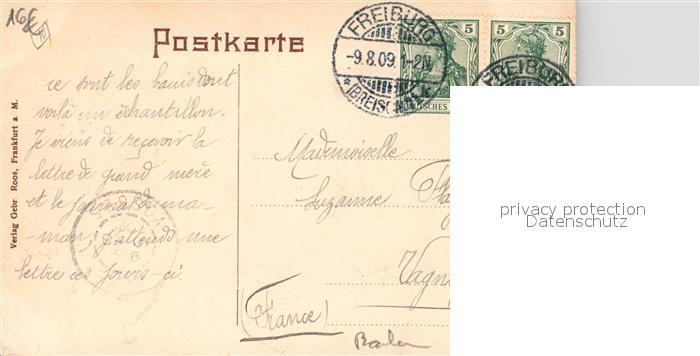 168
Postkarte
FREIBURG
-9.8.09. 1-2N
*(BREISGAU)*
5
5
FREIBURG
ce sont les bains dont
voilà un échantillon.
Je viens de reçevoir la
lettre de grand mère
et le journal de ma-
-man; j'attends une
lettre ces jours-ci.
Mademoiselle
Suzanne
Vagn
(France)
Baden
Verlag Gebr. Roos, Frankfurt a. M.
privacy protection
Datenschutz